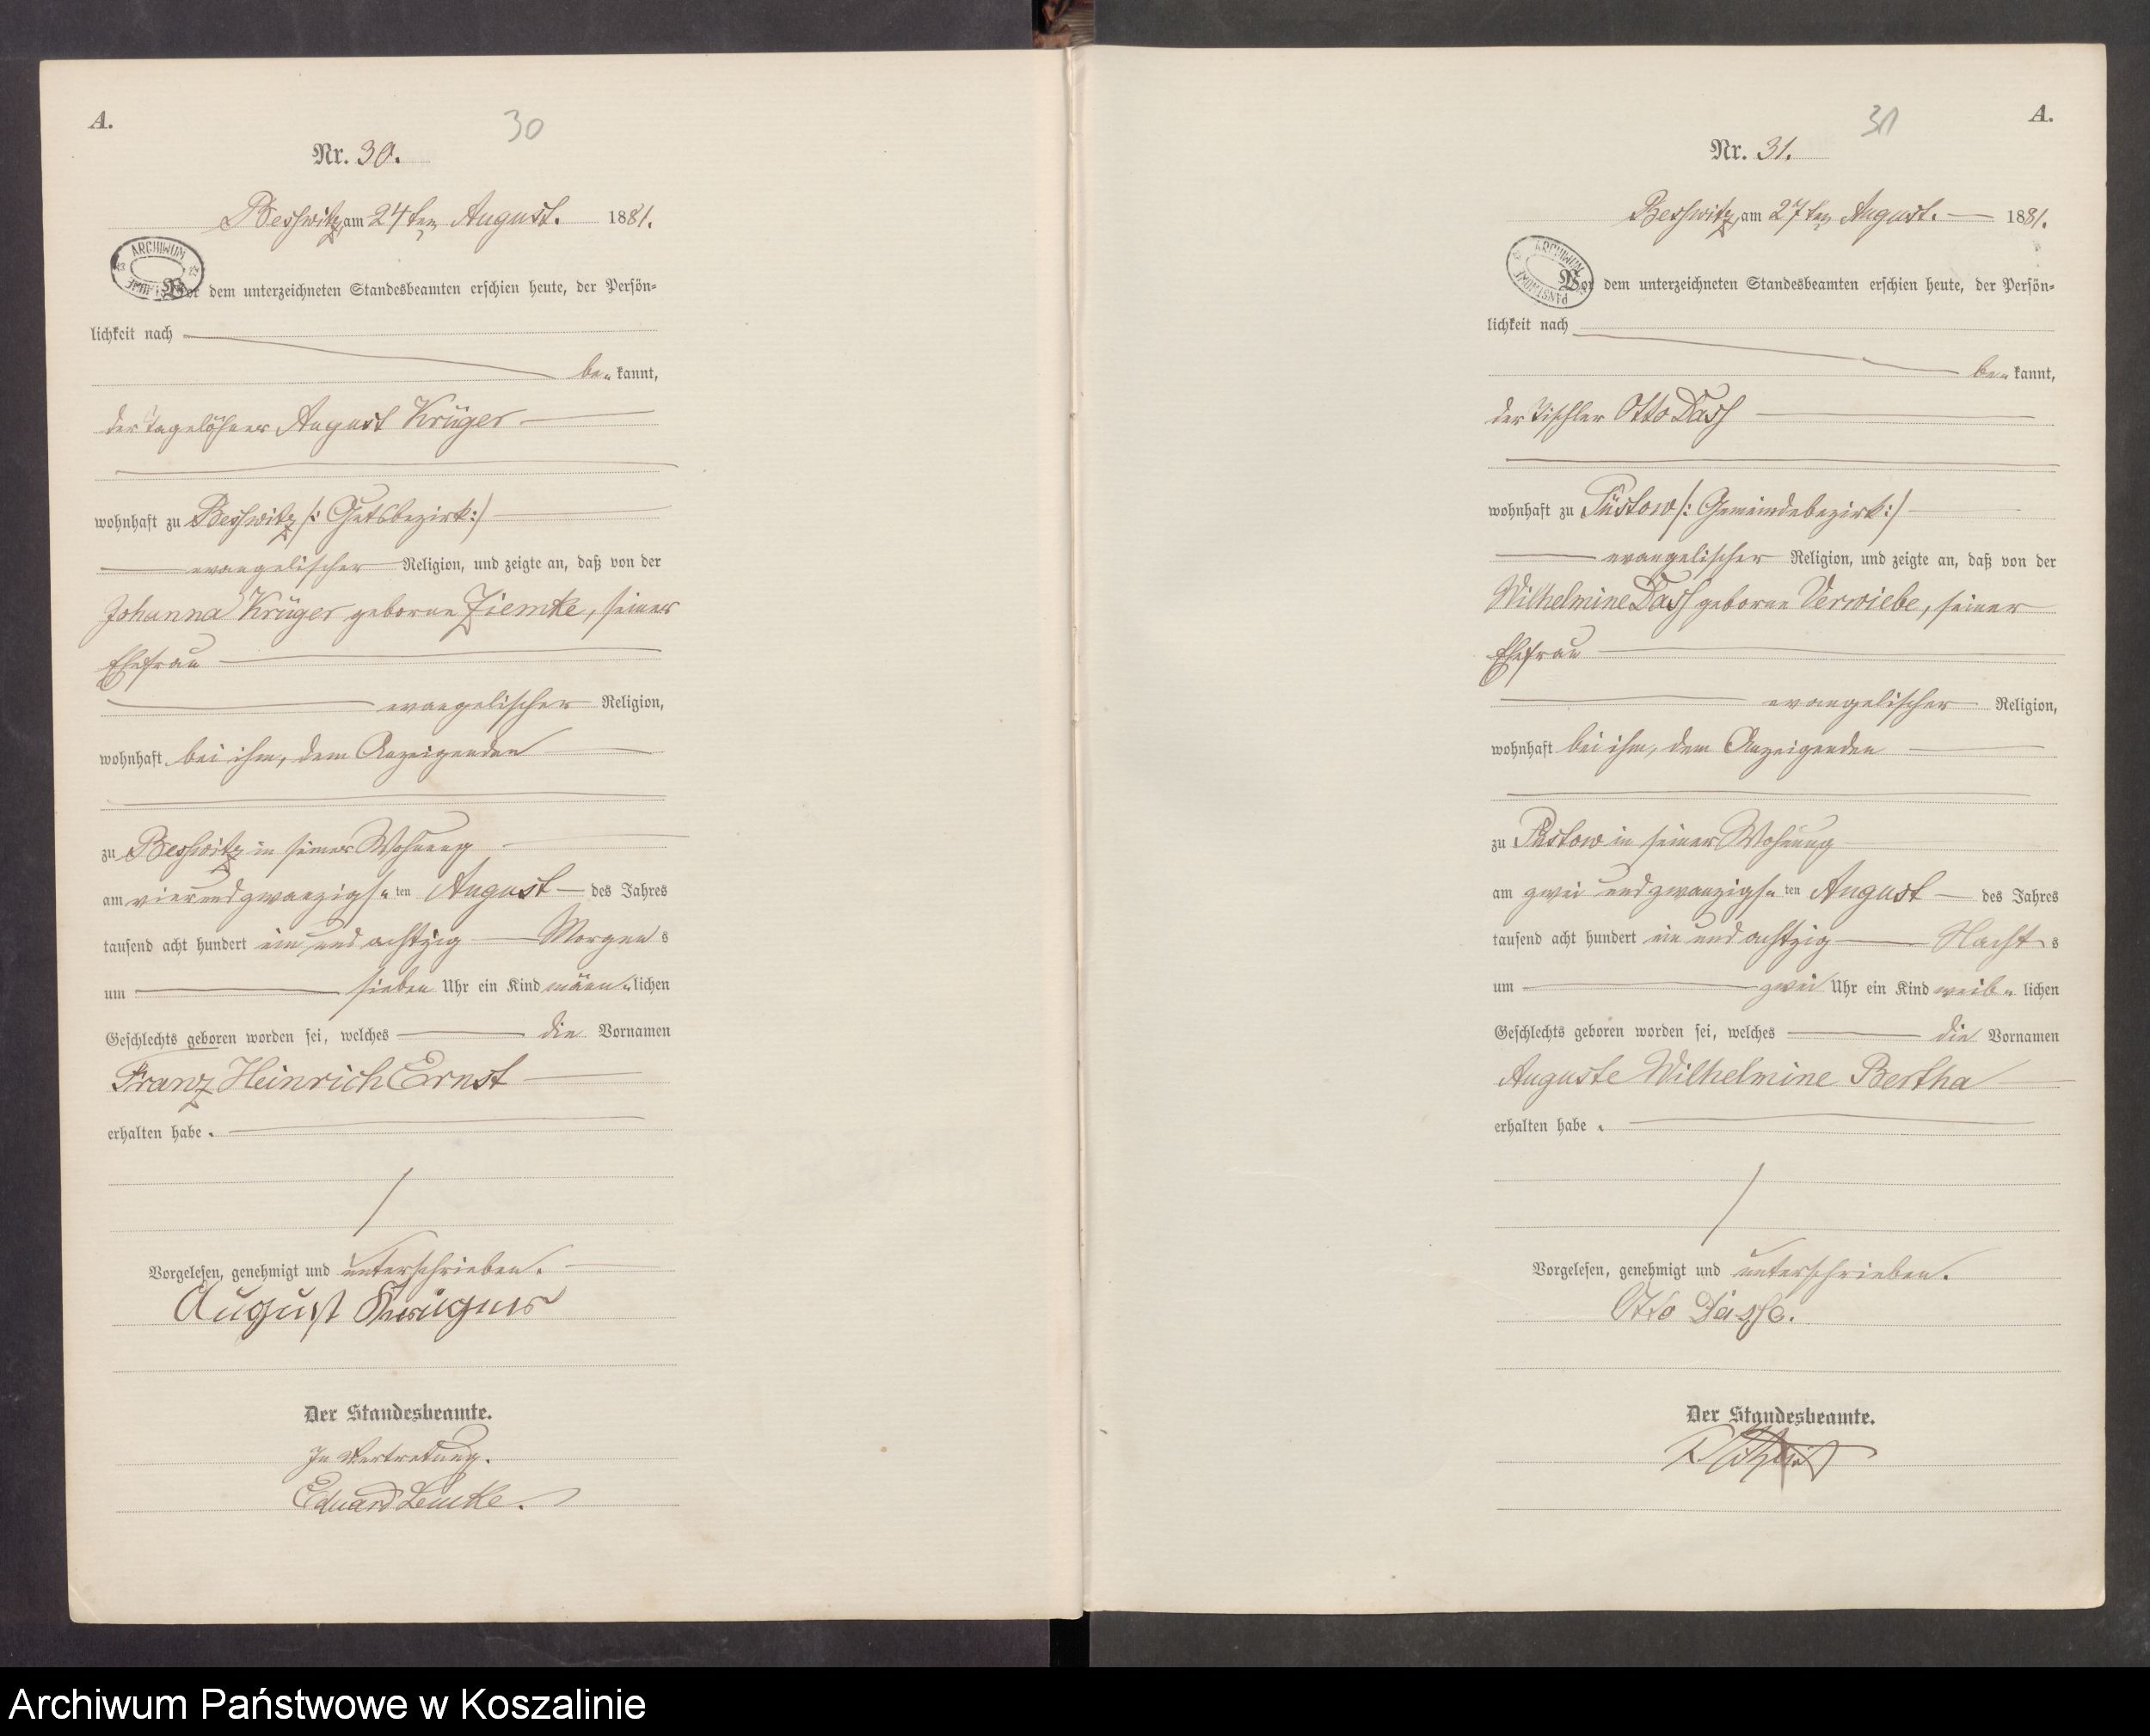 A.
30
Nr. 30.
Beßwitz, am 24ten August. 1881.
ARCHIWUM
Vor dem unterzeichneten Standesbeamten erschien heute, der Persön-
lichkeit nach
be- kannt,
der Tagelöhner August Krüger
wohnhaft zu Beßwitz /: Gutsbezirk :/
evangelischer Religion, und zeigte an, daß von der
Johanna Krüger geborne Ziemke, seiner
Ehefrau
evangelischer Religion,
wohnhaft bei ihm, dem Anzeigenden
zu Beßwitz in seiner Wohnung
am vierundzwanzigs- ten August des Jahres
tausend acht hundert ein und achtzig Morgens
um sieben Uhr ein Kind männ- lichen
Geschlechts geboren worden sei, welches die Vornamen
Franz Heinrich Ernst
erhalten habe.
Vorgelesen, genehmigt und unterschrieben.
August Krüger
Der Standesbeamte.
In Vertretung.
Eduard Lemke.
31
A.
Nr. 31.
Beßwitz, am 27ten August. 1881.
ARCHIWUM PAŃSTWOWE
Vor dem unterzeichneten Standesbeamten erschien heute, der Persön-
lichkeit nach
be- kannt,
der Tischler Otto Dass
wohnhaft zu Püstow /: Gemeindebezirk :/
evangelischer Religion, und zeigte an, daß von der
Wilhelmine Dass geborne Verwiebe, seiner
Ehefrau
evangelischer Religion,
wohnhaft bei ihm, dem Anzeigenden
zu Püstow in seiner Wohnung
am zwei und zwanzigs- ten August des Jahres
tausend acht hundert ein und achtzig Nachts
um zwei Uhr ein Kind weib- lichen
Geschlechts geboren worden sei, welches die Vornamen
Auguste Wilhelmine Bertha
erhalten habe.
Vorgelesen, genehmigt und unterschrieben.
Otto
Der Standesbeamte.
Archiwum Państwowe w Koszalinie